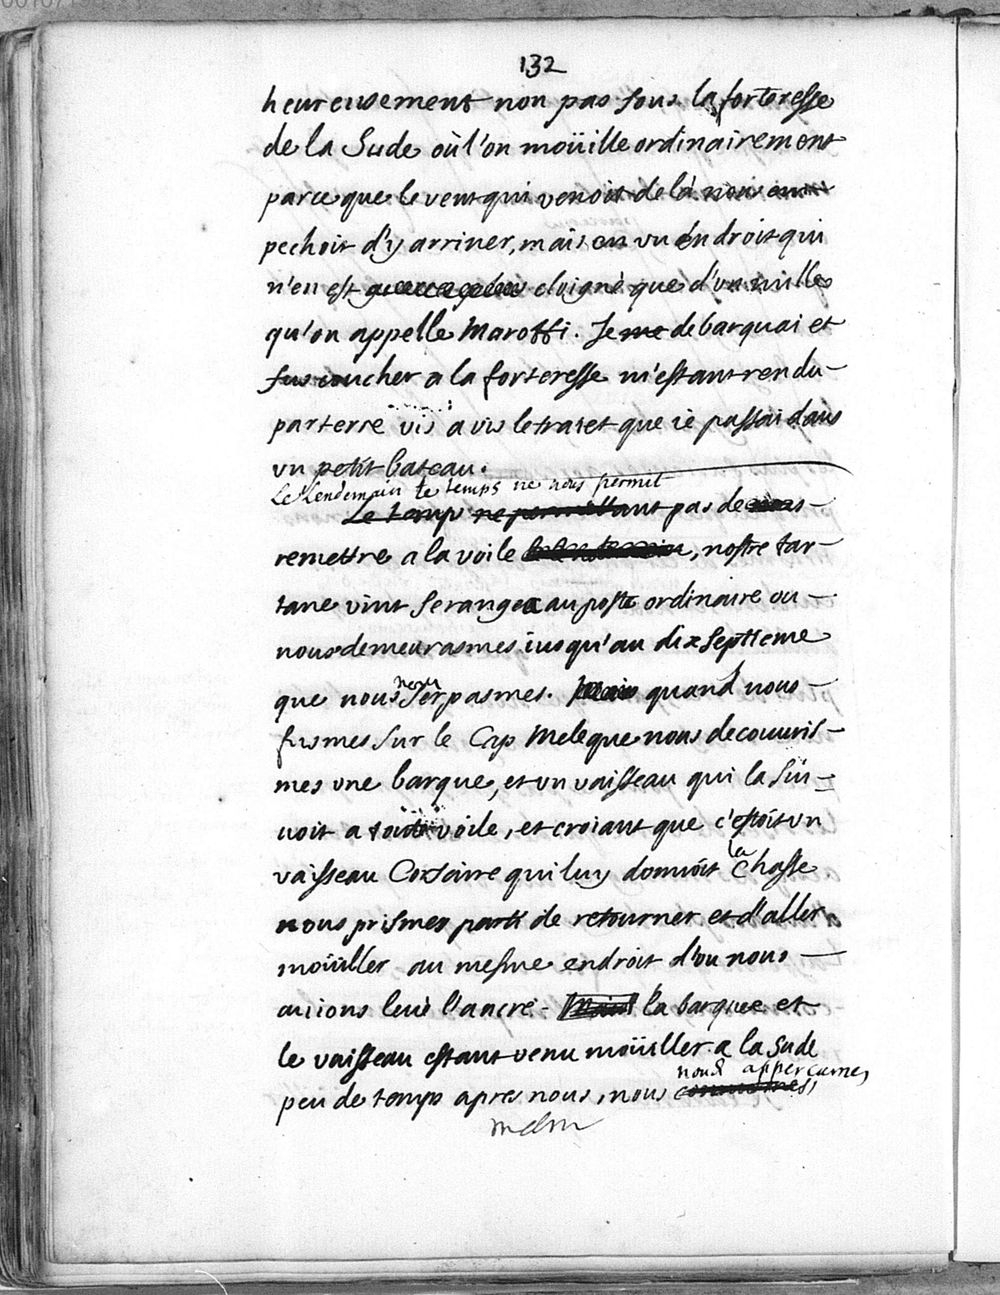 132
heureusement non pas sous la forteresse
de la Sude où l'on moüille ordinairement
parce que le vent qui venoit de là nous em
pechoit d'y arriuer, mais en vn endroit qui
n'en est eloigné que d'un milles
qu'on appelle Maroffi. Je me debarquai et
fus coucher a la forteresse m'estant rendu
par terre vis a vis le traiet que ie passai dans
vn petit bateau.
Le lendemain le temps ne nous permit
Le temps ne permettant pas de
remettre a la voile, nostre tar-
tane vint se ranger au poste ordinaire ou
nous demeurasmes iusqu'au dix septieme
que nous Serpasmes. Mais quand nous
fusmes sur le Cap Meleque nous decouuris-
mes vne barque, et vn vaisseau qui la sui-
uoit a toute voile, et croiant que c'estoit vn
vaisseau Corsaire qui luy donnoit la chasse
nous prismes parti de retourner et d'aller
moüiller au mesme endroit d'ou nous
auions leué l'ancre. Mais la barque et
le vaisseau estant venu moüiller a la Sude
nous apperçumes
peu de temps apres nous, nous connumes